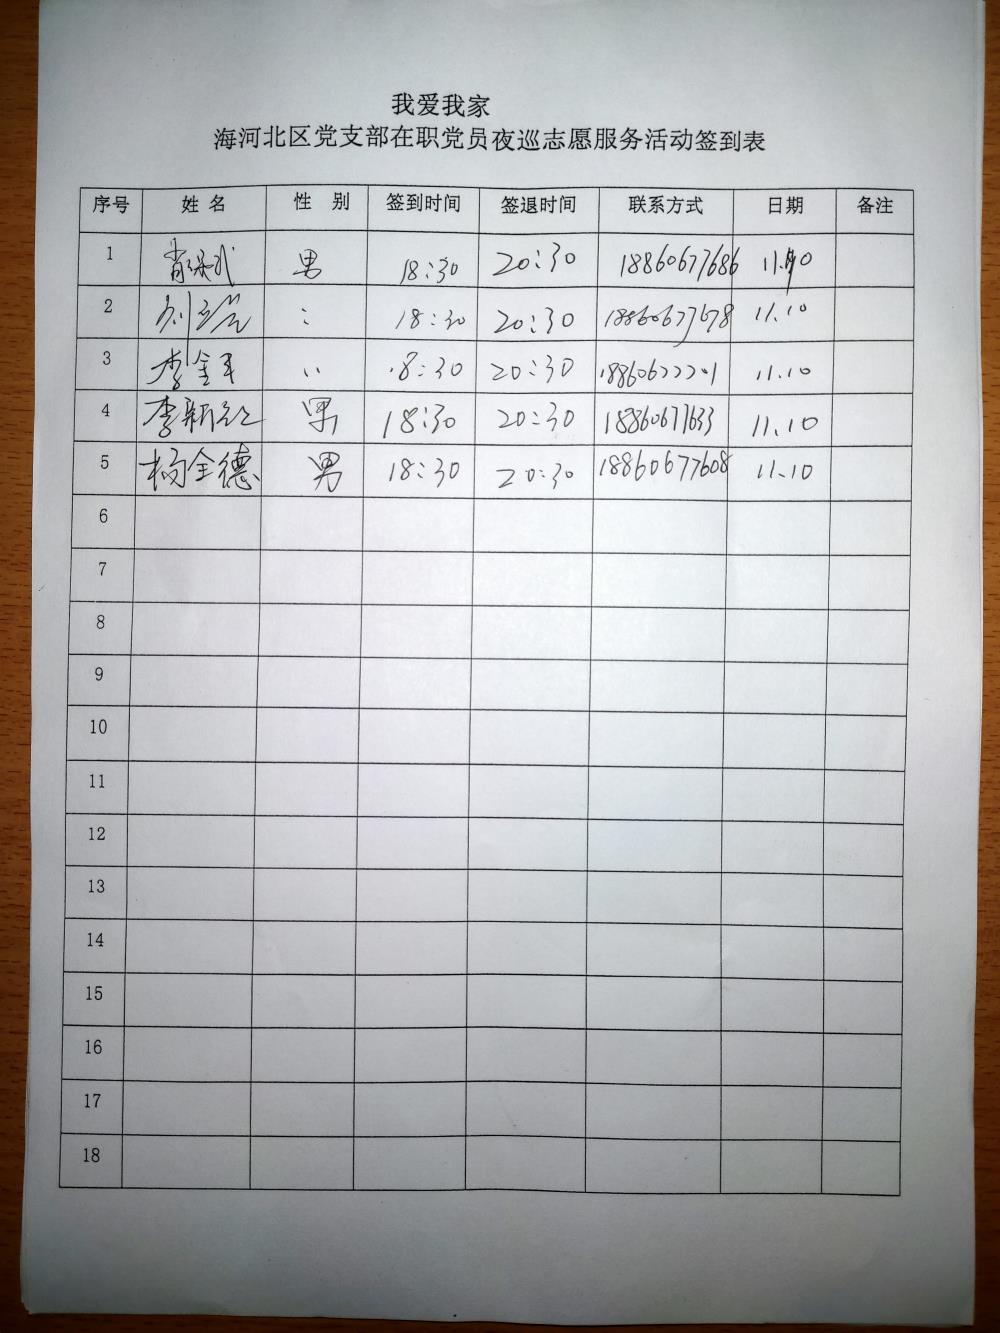 我爱我家
海河北区党支部在职党员夜巡志愿服务活动签到表
序号 姓名 性别 签到时间 签退时间 联系方式 日期 备注
1 男 18:30 20:30 18860677686 11.10
2 刘 : 18:30 20:30 18860677678 11.10
3 李金 18:30 20:30 11.10
4 李新 男 18:30 20:30 18860677633 11.10
5 杨全德 男 18:30 20:30 18860677608 11.10
6
7
8
9
10
11
12
13
14
15
16
17
18